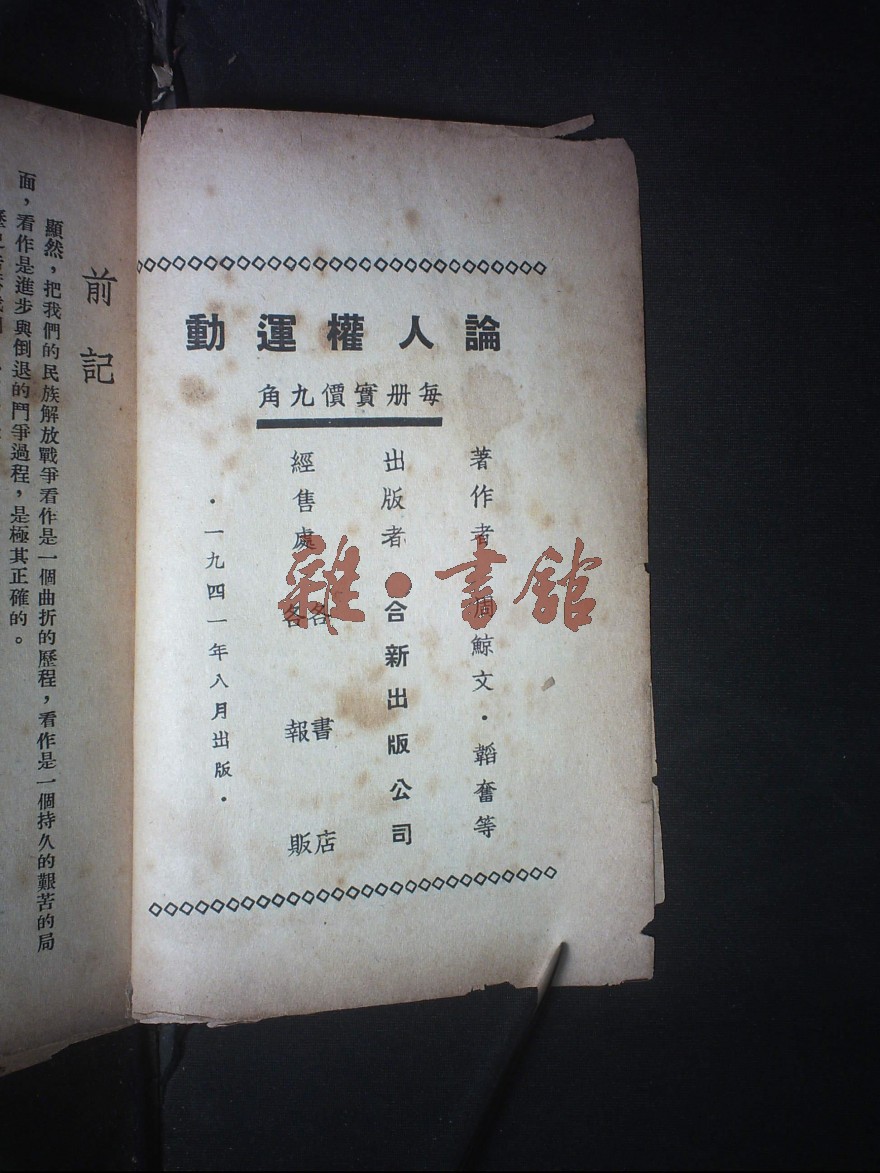 論人權運動
每册實價九角
著作者 周鯨文・韜奮等
出版者 合新出版公司
經售處 各書店
各報販
・一九四一年八月出版・
前記
顯然，把我們的民族解放戰爭看作是一個曲折的歷程，看作是一個持久的艱苦的局
面，看作是進步與倒退的鬥爭過程，是極其正確的。
雜・書館